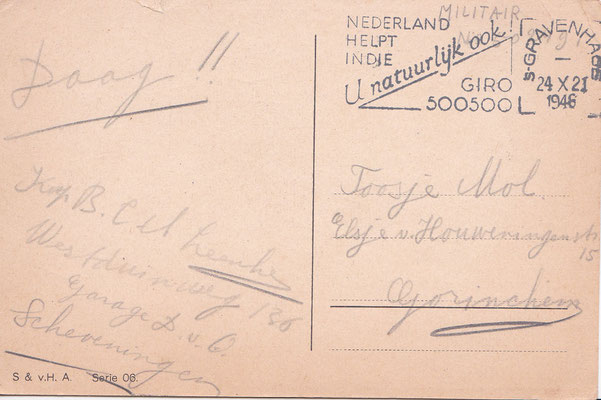 Daag!!
Westduinweg 136
Garage D. v. C.
Scheveningen
S & v.H. A. Serie 06.
MILITAIR
NEDERLAND
HELPT
INDIE
U natuurlijk ook!
GIRO
500500
S-GRAVENHAGE
24 X 21
1946
Toosje Mol
Elsje v. Houweningenstr
15
Gorinchem